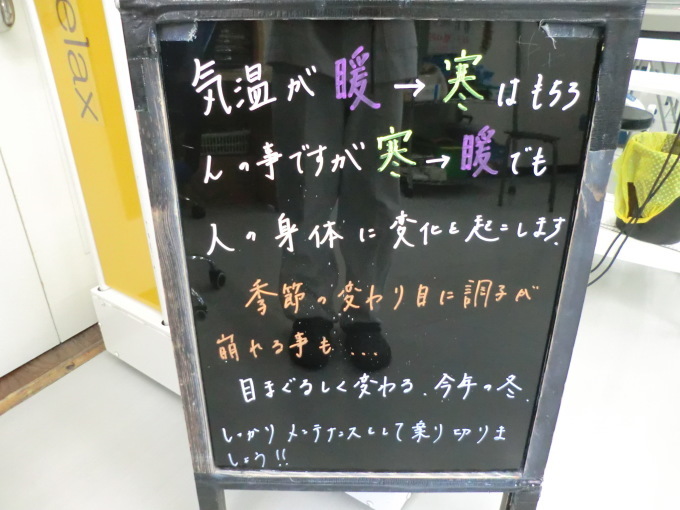 elax
気温が 暖→寒はもちろ
んの事ですが寒→暖でも
人の身体に変化を起こします。
季節の変わり目に調子が
崩れる事も...
目まぐるしく変わる、今年の冬、
しっかりメンテナンスをして乗り切りま
しょう!!